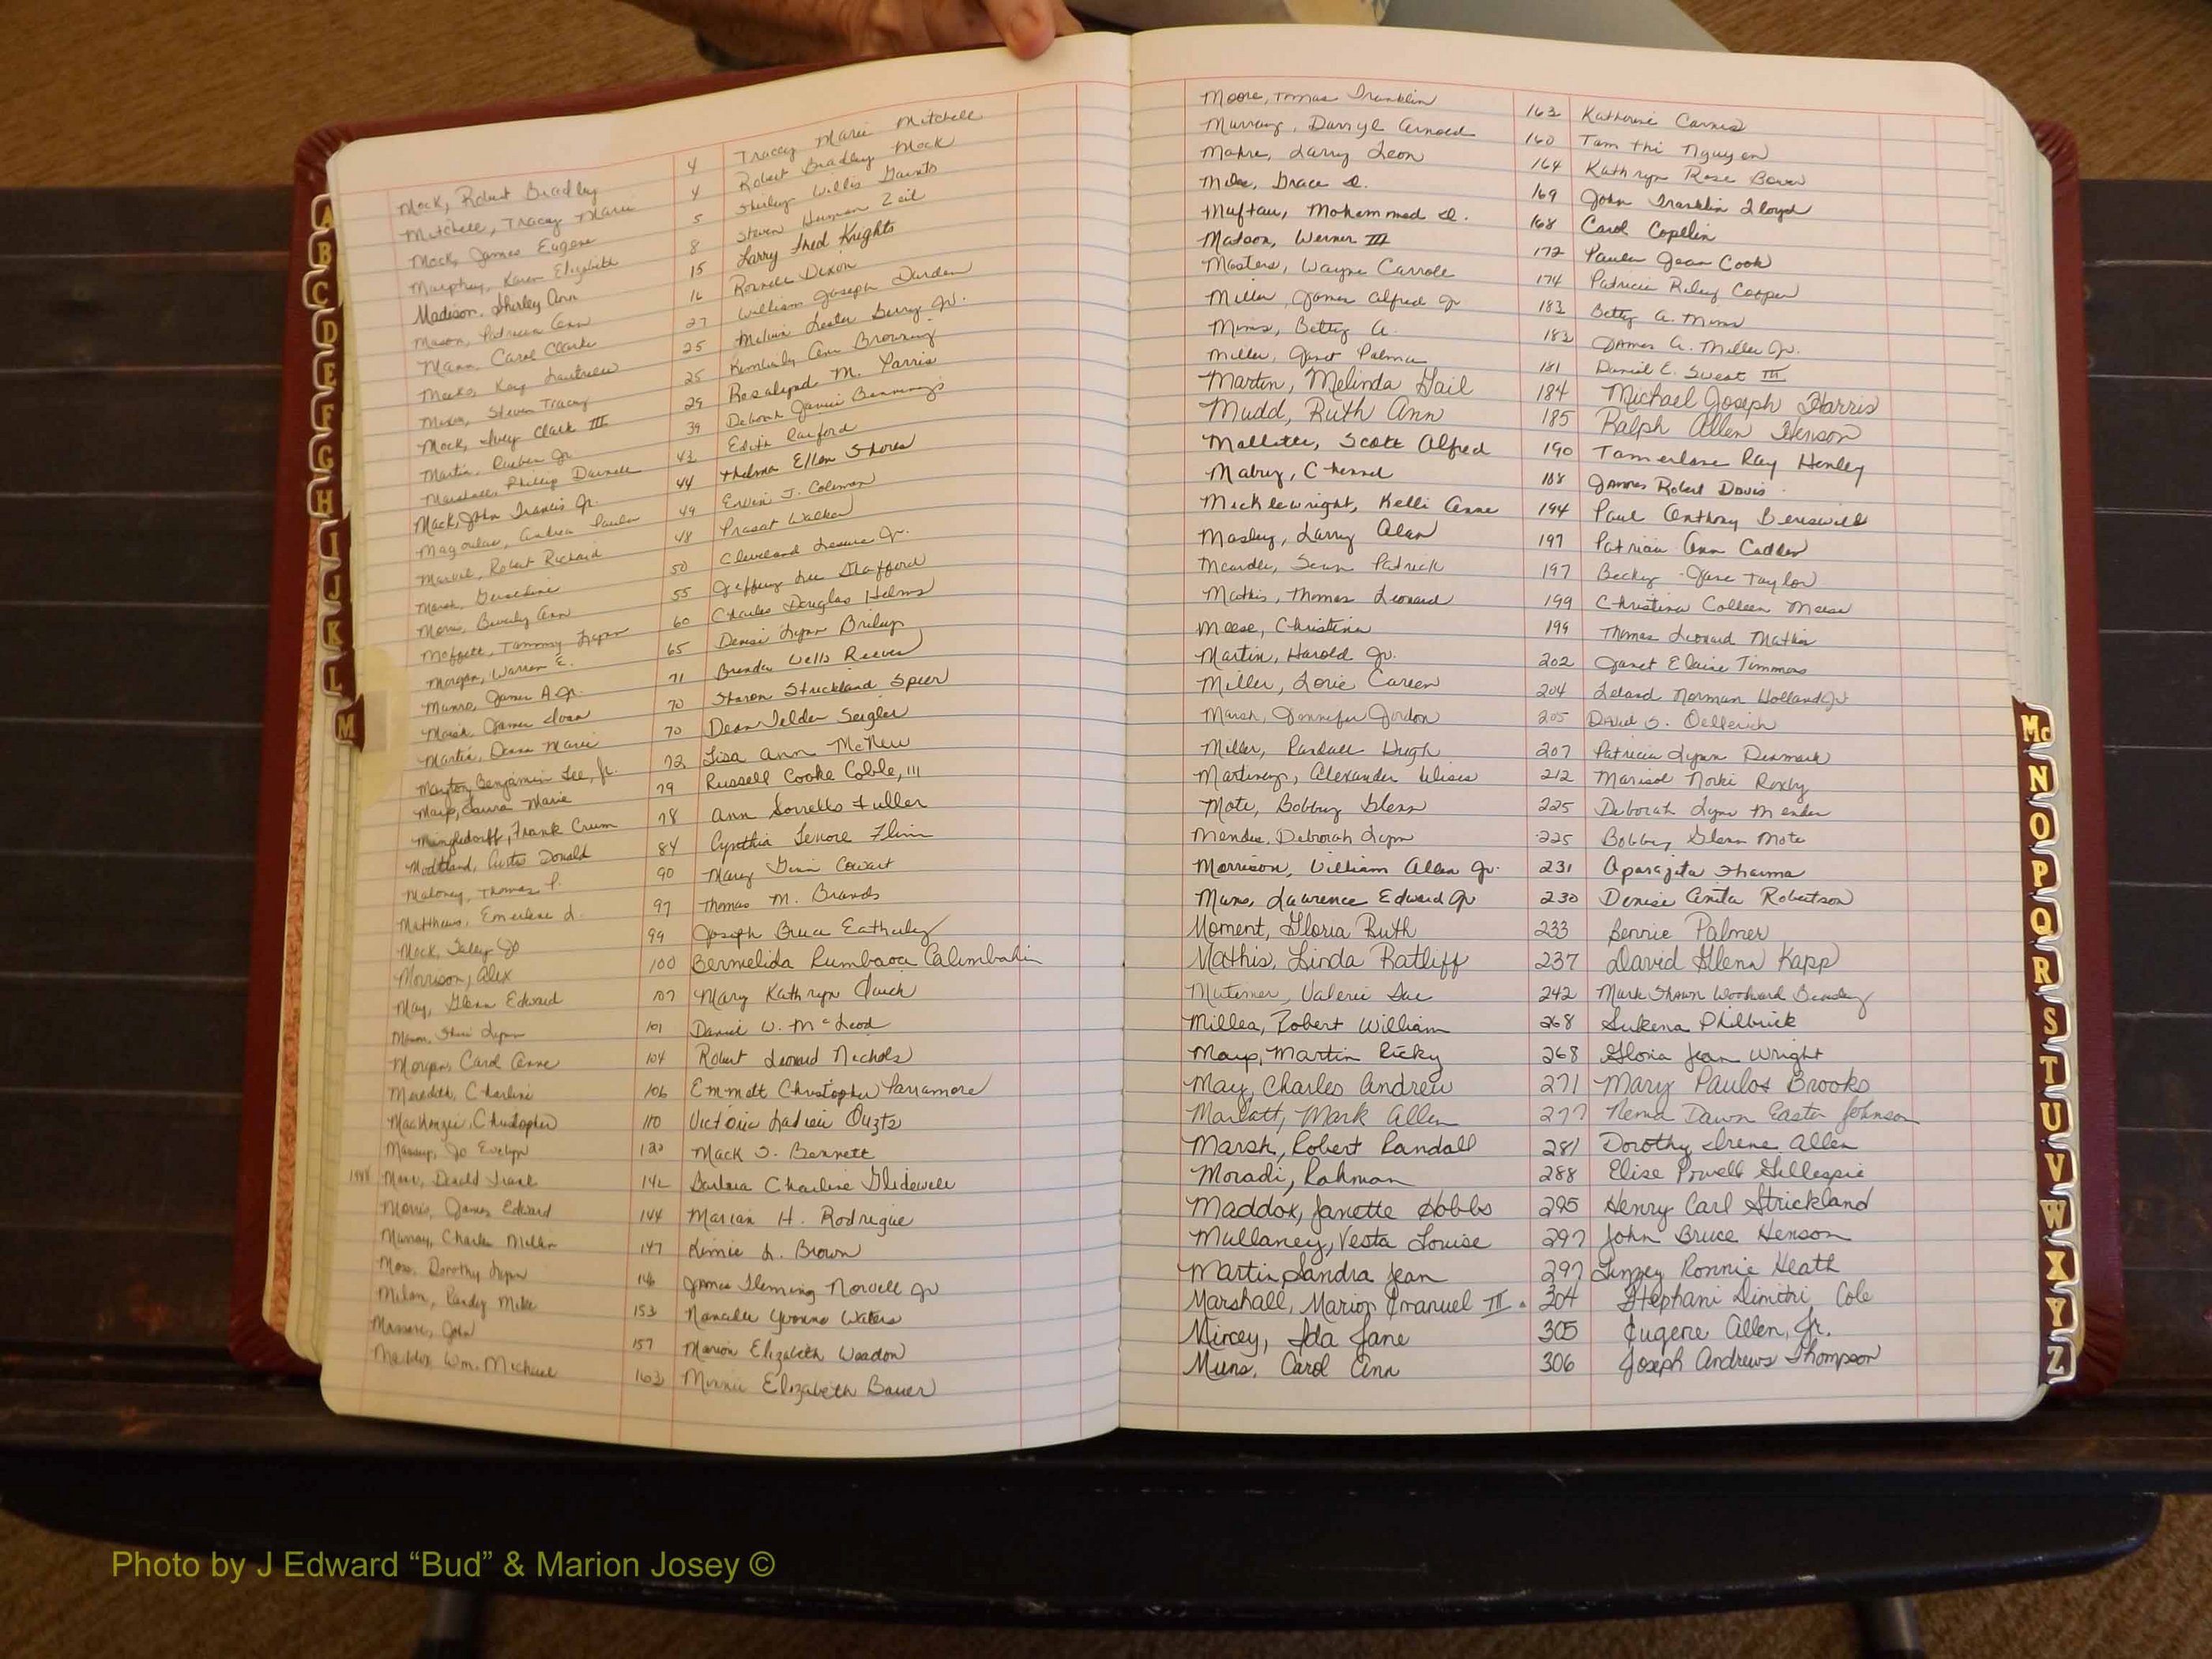 Mock, Robert Bradley 4 Tracey Marie Mitchell
Mitchell, Tracey Marie 4 Robert Bradley Mock
Mock, James Eugene 5 Shirley Willis
Murphy, Karen Elizabeth 8 Steven Herman Zeil
Madison, Shirley Ann 15 Larry Fred Knights
Mason, Patricia Ann 16 Ronnell Dixon
Mann, Carol Clarke 27 William Joseph Durden
Meeks, Kay 25 Melvin Lester Berry Jr.
Mixon, Steven Tracey 25 Kimberly Ann Browning
Mock, Ivey Clark III 29 Rosalynd M. Parris
Martin, Rueben Jr. 39 Deborah Janice Bennings
Marshall, Phillip Darnell 43 Edith
Mack, John Francis Jr. 44 Thelma Ellen Shores
Magoulas, Andrea Paula 49 Ervin J. Coleman
Marvil, Robert Richard 48 Prasat Walker
Marsh, Geraldine 50 Cleveland Jr.
Morris, Beverly Ann 55 Jeffery Lee Stafford
Moffett, Tammy Lynn 60 Charles Douglas Helms
Morgan, Warren E. 65 Denise Lynn Briley
Munro, James A. Jr. 71 Brenda Wells Reeves
Marsh, James Sloan 70 Sharon Strickland Speer
Martin, Deana Marie 70 Dean Felder Seigler
Mayton, Benjamin Lee, Jr. 72 Lisa Ann McNew
Mays, Laura Marie 79 Russell Cooke Coble, III
Mingledorff, Frank Crum 78 Ann Sorrells Fuller
Modtland, Curtis Donald 84 Cynthia Lenore Flinn
Maloney, Thomas P. 90 Mary Cowart
Matthews, Emerlene L. 97 Thomas M. Brands
Mock, Jo 99 Joseph Bruce Eatherly
Morrison, Alex 100 Bermelida Rumbaoa Calimbahin
May, Glenn Edward 107 Mary Kathryn
Lynn 101 Daniel W. McLeod
Morgan, Carol Anne 104 Robert Leonard Nichols
Meredith, Charline 106 Emmett Christopher Parramore
MacKenzie, Christopher 110 Victoria Ouzts
Jo Evelyn 120 Mack S. Bennett
1988 Donald Frank 142 Barbara Charline Glidewell
Morris, James Edward 144 Marian H. Rodrigue
Murray, Charles Miller 147 Kimie L. Brown
Moss, Dorothy Lynn 146 James Fleming Norvell Jr
Milam, Randy Mike 153 Nanalee Yvonne Waters
John 157 Marion Elizabeth Weadon
Maddox Wm. Michael 163 Minnie Elizabeth Bauer
Moore, Tomas Franklin 163 Katherine Carnes
Murray, Darryl Arnold 160 Tam Thi Nguyen
Larry Leon 164 Kathryn Rose Bowen
Grace D. 169 John Franklin Floyd
Muftau, Mohammed D. 168 Carol Copelin
Matson, Werner III 172 Paula Jean Cook
Masters, Wayne Carrole 174 Patricia Riley Cooper
Miller, James Alfred Jr 183 Betty A. Mims
Mims, Betty A. 183 James A. Miller Jr.
Miller, Janet Palmer 181 Daniel E. Sweat III
Martin, Melinda Gail 184 Michael Joseph Harris
Mudd, Ruth Ann 185 Ralph Allen Henson
Mallette, Scott Alfred 190 Tamerlane Ray Henley
Mabry, 188 James Robert Davis
Micklewright, Kelli Anne 194 Paul Anthony Bereswill
Mosley, Larry Alan 197 Patricia Ann
Sean Patrick 197 Becky Jane Taylor
Mathis, Thomas Leonard 199 Christina Colleen Meese
Meese, Christina 199 Thomas Leonard Mathis
Martin, Harold Jr. 202 Janet Elaine Timmons
Miller, Lorie Careen 204 Leland Norman Holland Jr
Marsh, Jennifer Jordon 205 David S. Oellerich
Miller, Randall Hugh 207 Patricia Lynn Denmark
Martinez, Alexander Ulises 212 Marisol Roxby
Mote, Bobby Glenn 225 Deborah Lynn Mendes
Mendes, Deborah Lynn 225 Bobby Glenn Mote
Morrison, William Allen Jr. 231 Aparajita Sharma
Muns, Laurence Edward Jr 230 Denise Anita Robertson
Moment, Gloria Ruth 233 Bennie Palmer
Mathis, Linda Ratliff 237 David Glenn Kapp
Mutimer, Valerie Sue 242 Mark Shawn Woodward
Millea, Robert William 268 Sukena Philbrick
Mays, Martin Ricky 268 Gloria Jean Wright
May, Charles Andrew 271 Mary Paulos Brooks
Marlatt, Mark Allen 277 Nema Dawn Easter Johnson
Marsh, Robert Randall 281 Dorothy Irene Allen
Moradi, Rahman 288 Elise Powell Gillespie
Maddox, Janette Hobbs 295 Henry Carl Strickland
Mullaney, Vesta Louise 297 John Bruce Henson
Martin, Sandra Jean 297 Linzey Ronnie Heath
Marshall, Marion Emanuel III. 304 Stephani Dimitri Cole
Mircey, Ida Jane 305 Eugene Allen, Jr.
Muns, Carol Ann 306 Joseph Andrews Thompson
A
B
C
D
E
F
G
H
I
J
K
L
M
Mc
N
O
P
Q
R
S
T
U
V
W
X
Y
Z
Photo by J Edward “Bud” & Marion Josey ©